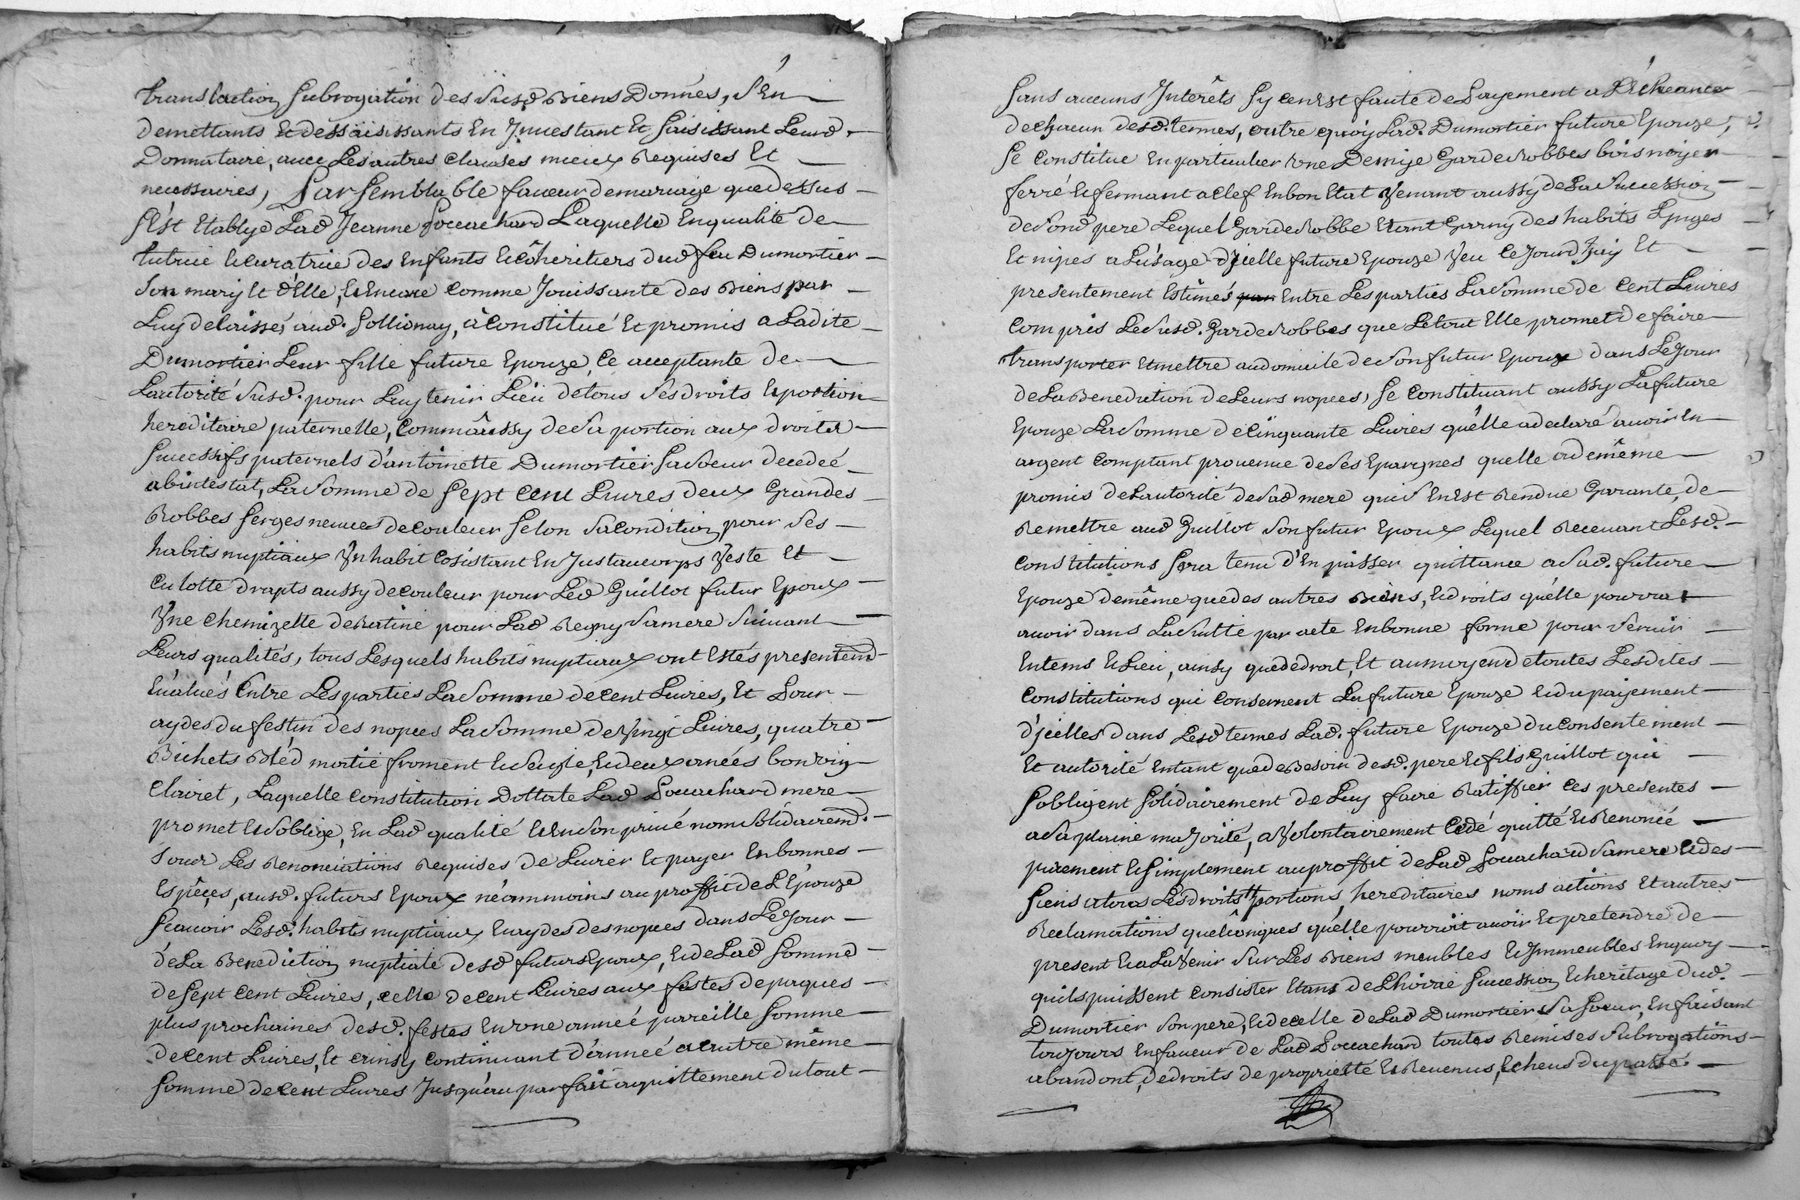 translation subrogation des susd. Biens Donnés, s'En
demettants Et dessaisissants En Jnvestant Et saisissant Leurd.
Donnataire, avec Les autres clauses mieux Requises Et
necessaires, Par semblable faveur de mariage que dessus
s'Est Etablye Lad. Jeanne Souachard Laquelle En qualité de
tutrice Et curatrice des Enfants Et côheritiers dud. feu Dumortier
son mary Et d'Elle, Et Encore comme Jouissante des Biens par
Luy delaissés aud. Sollignay, à constitué Et promis a Ladite
Dumortier Leur fille future Epouze, Ce acceptante de
L'autorité susd. pour Luy tenir Lieu de tous ses droits Et portion
hereditaire paternelle, Comm'aussy de sa portion aux droits
successifs paternels d'antoinette Dumortier sa soeur decedeé
abintestat, La somme de sept cent Livres deux Grandes
Robbes serges neuves de couleur selon sa condition pour ses
habits nuptiaux Vn habit cosistant En Justaucorps Veste Et
culotte drapts aussy de couleur pour Led. Guillot futur Epoux
Vne chemizette de Ratine pour Lad. Regny sa mere suivant
Leurs qualités, tous Lesquels habits nuptiaux ont Estés presentemd.
Evalués Entre Les parties La somme de cent Livres, Et Pour
aydes du festin des nopces La somme de Vingt Livres, quatre
Bichets Bléd moitié froment Et seigle, Et deux arnées bon vin
Clairet, Laquelle constitution Dottale Lad. Souachard mere
promet Et s'oblige, En Lad. qualité Et En son privé nom solidairemd.
sous Les Renonciations Requises de Livrer Et payer En bonnes
Espêces, ausd. futurs Epoux néammoins au proffit de L'Epouze
sçavoir Lesd. habits nuptiaux Et aydes des nopces dans Le Jour
de La Benediction nuptiale desd. futurs Epoux, Et de Lad. somme
de sept cent Livres, celle de cent Livres aux festes de paques
plus prochaines desd. festes En une année pareille somme
de cent Livres, Et ainsy continuant d'année a autre même
somme de cent Livres Jusqu'au parfait aquittement du tout
sans aucuns Jnterêts sy ce n'Est faute de Payement a L'écheance
de chacun desd. termes, outre quoy Lad. Dumortier future Epouze,
se constitue En particulier Vne Demÿe Garderobbes bois noyer
ferré Et fermant a clef En bon Etat Venant aussy de La succession
de sond. pere Lequel Garderobbe Etant Garny des habits Lynges
Et nipes a L'usage d'jcelle future Epouze Veu Ce Jourd'huy Et
presentement Estimés Entre Les parties La somme de Cent Livres
compris Le susd. Garderobbes que Le tout Elle promet de faire
transporter Et mettre au domicile de son futur Epoux dans Le Jour
de La Benediction de Leurs nopces, se constituant aussy La future
Epouze La somme de cinquante Livres qu'elle a declaré avoir En
argent comptant provenue de ses Epargnes quelle a de même
promis de L'autorité de sad. mere qui s'En Est Rendue Garante, de
Remettre aud. Guillot son futur Epoux Lequel Recevant Lesd.
constitutions sera tenu d'En passer quittance a sad. future
Epouze de même que des autres Biens, Et droits qu'elle pourra
avoir dans La suitte par acte En bonne forme pour servir
En tems Et Lieu, ainsy que de droit, Et au moyen de toutes Lesdites
constitutions qui concernent La future Epouze Et du paÿement
d'jcelles dans Lesd. termes Lad. future Epouze du consentement
Et autorité Entant que de Besoin desd. pere Et fils Guillot qui
s'obligent solidairement de Luy faire Ratiffier ces presentes
a sa plaine majorité, a Volontairement Cedé quitté Et Renoncé
purement Et simplement au proffit de Lad. Souachard sa mere Et des
siens a tous Les droits portions, hereditaires noms actions Et autres
Reclamations quelconques qu'elle pourroit avoir Et pretendre de
present Et a L'avenir sur Les Biens meubles Et Jmmeubles En quoy
quils puissent consister Etans de L'hoirie succession Et heritage dud.
Dumortier son pere, Et de celle de Lad. Dumortier sa soeur, En faisant
toujours En faveur de Lad. Souachard toutes Remises subrogations
abandont, de droits de proprietté Et Revenus, Echeus du passé.